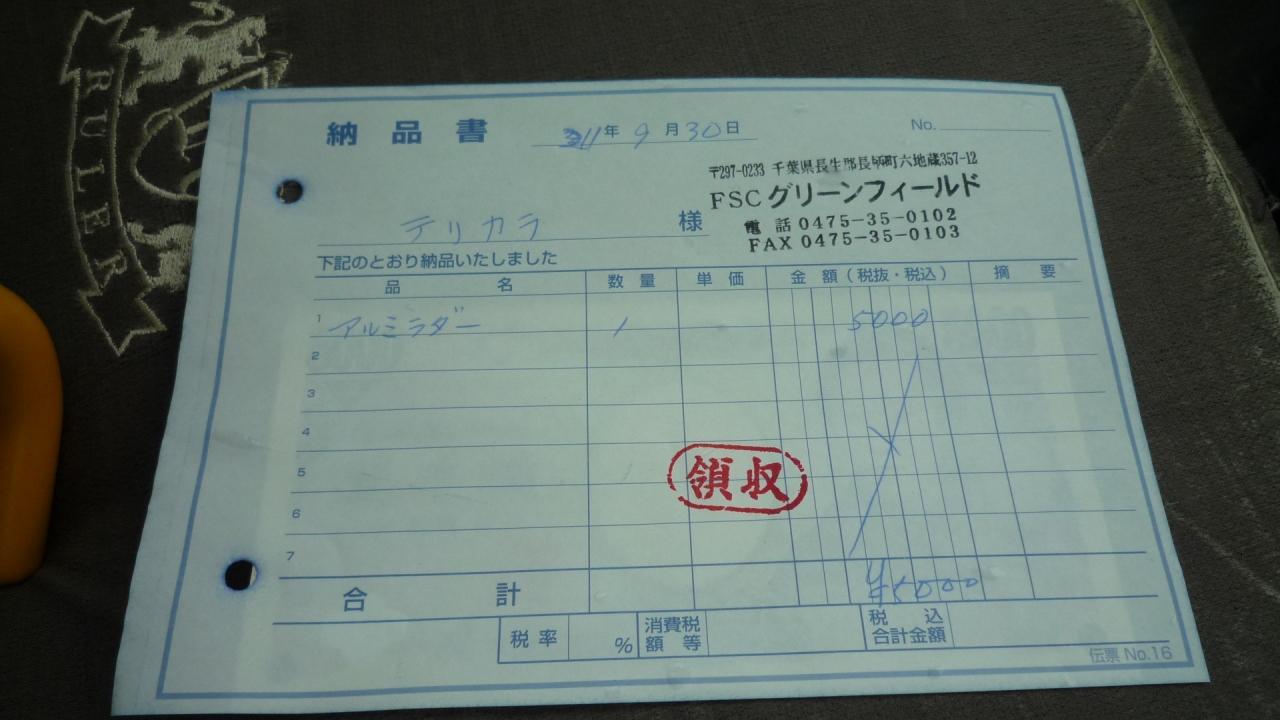 RULER
納品書 年 9 月 30 日 No.
〒297-0233 千葉県長生郡長柄町六地蔵357-12
FSC グリーンフィールド
電話 0475-35-0102
FAX 0475-35-0103
テリカラ 様
下記のとおり納品いたしました
品名 数量 単価 金額(税抜・税込) 摘要
1 アルミラダー 1 5000
2
3
4
5
6
7
領収
合計 ¥5000
税率 % 消費税額等 税込合計金額
伝票 No.16